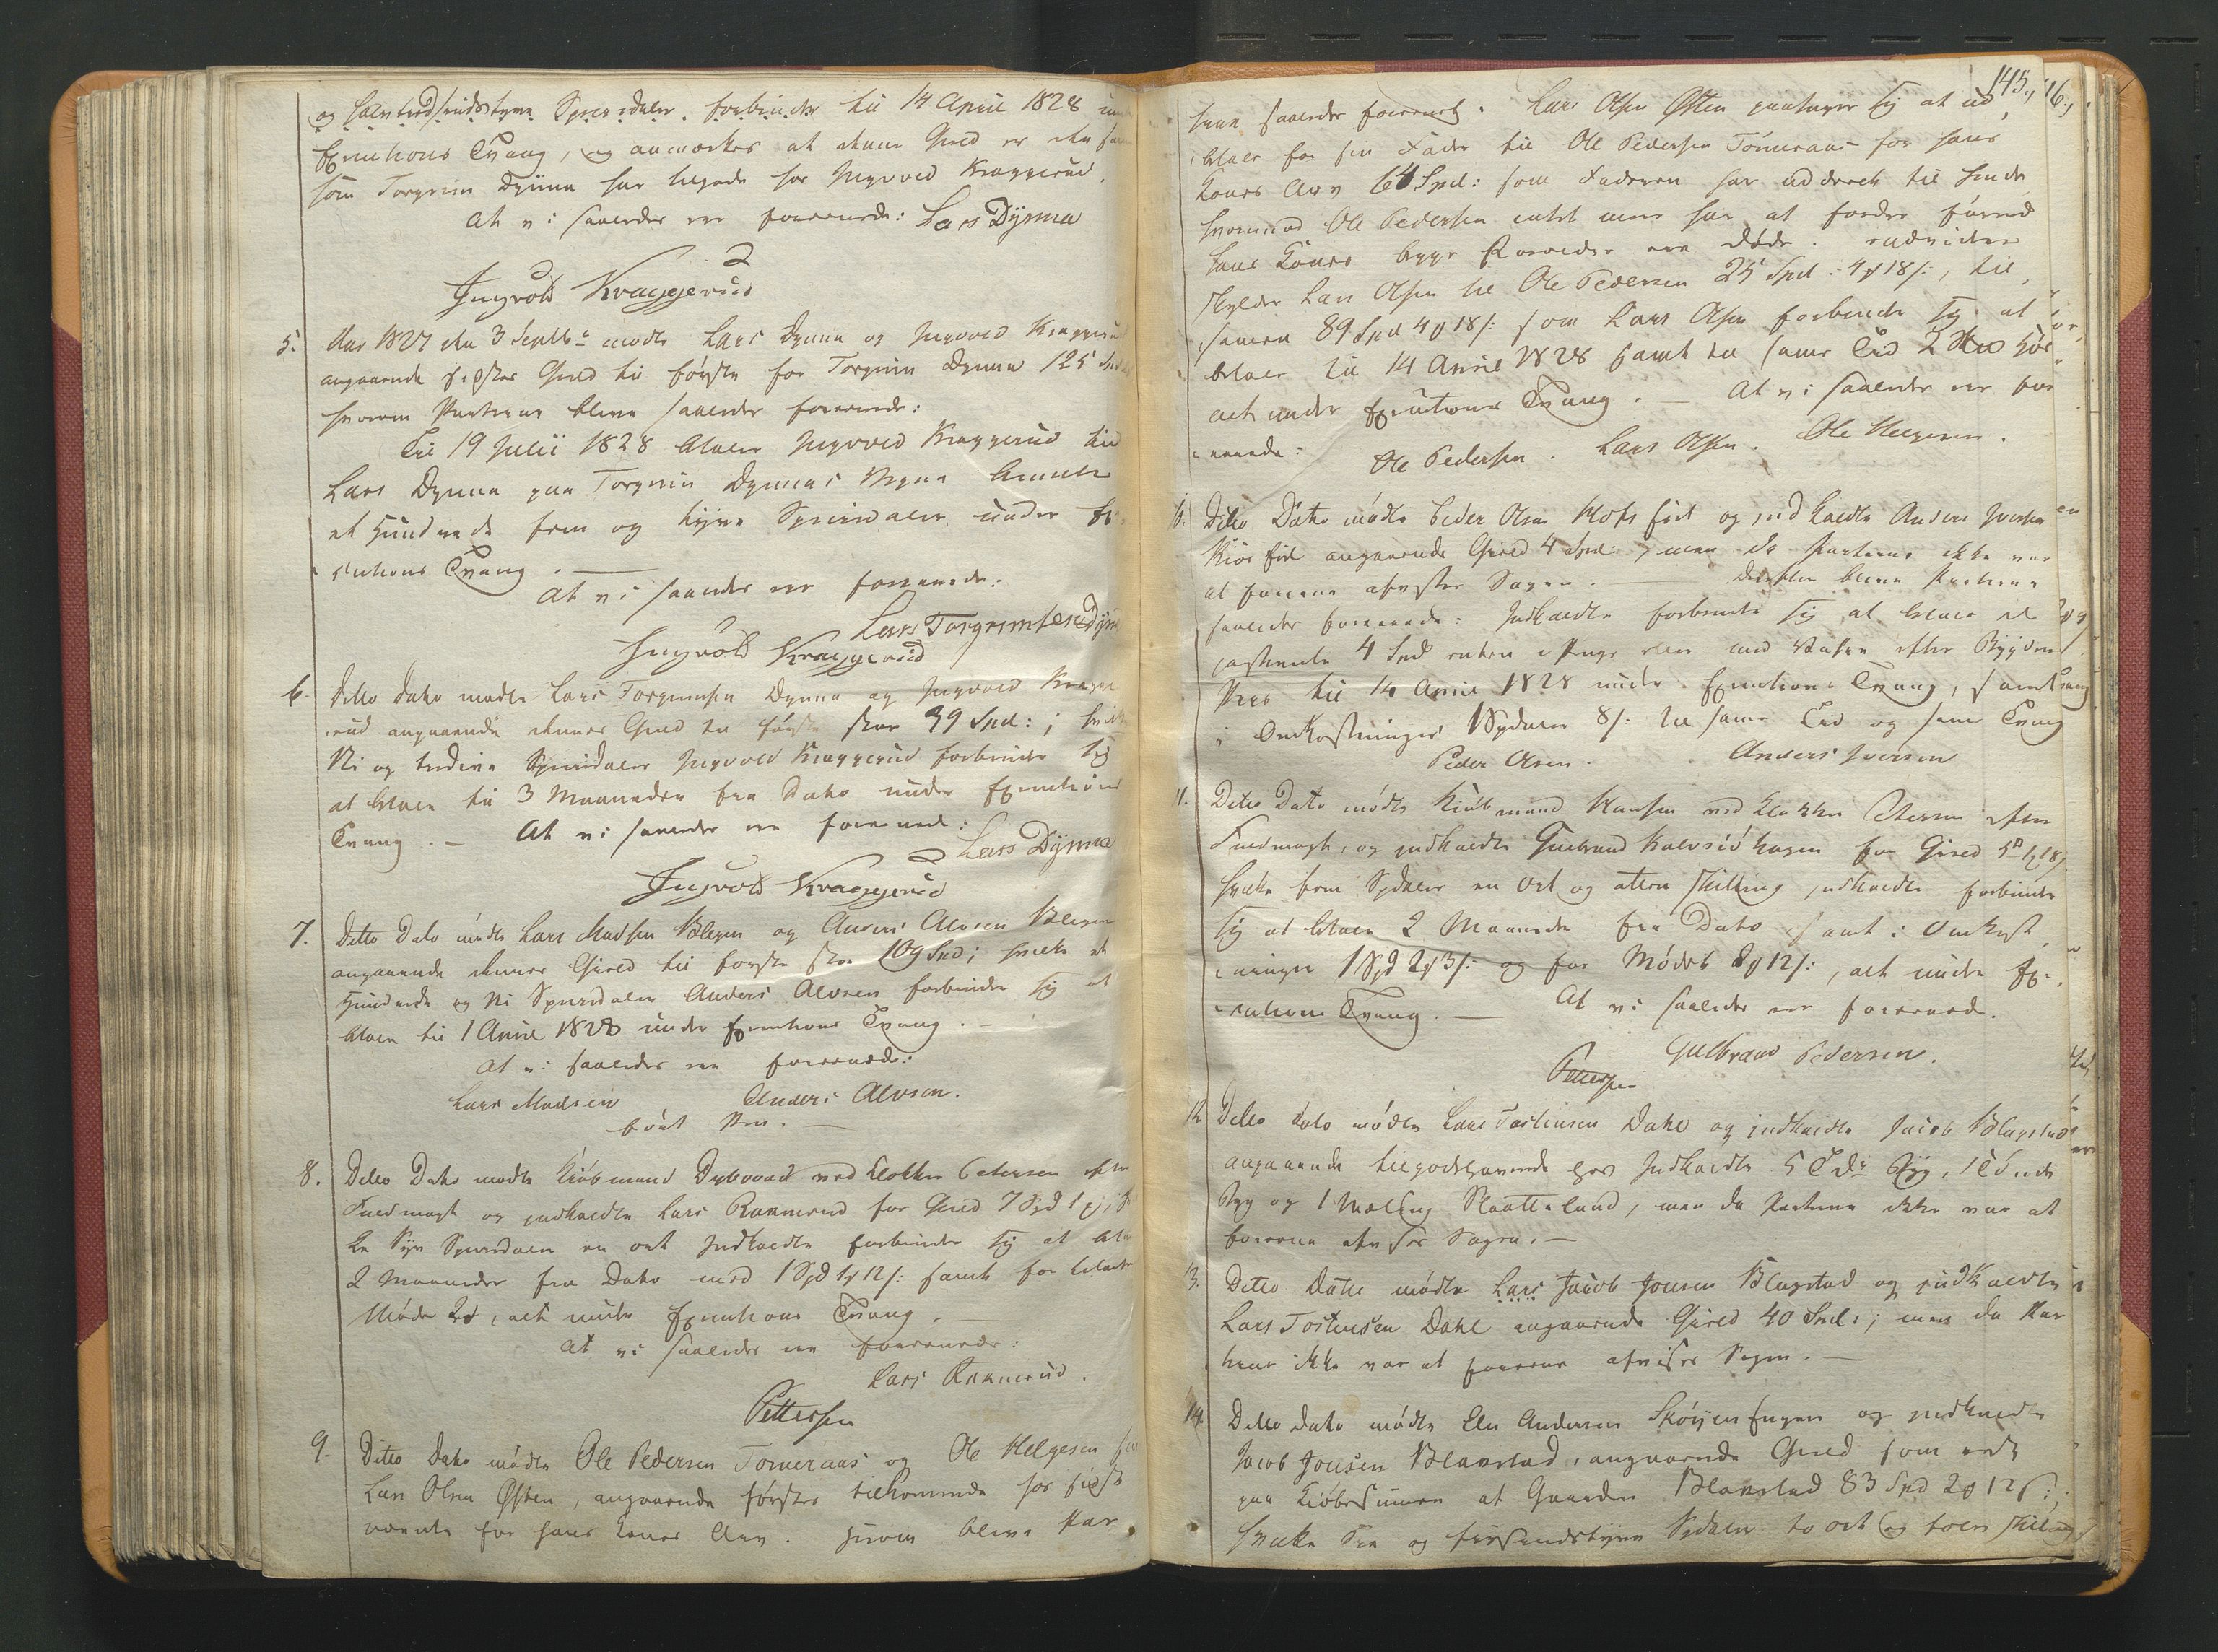 og halvtredsindstyve Spesidaler forbinder til 14 April 1828 under
Executions Tvang, og anmærkes at denne Gield er den samme
som Torgrim Dynna har lagede for Ingvold Kraggerud.
At vi saaledes ere forenede: Lars Dynna
Ingvold Kraggerud
5. Aar 1827 den 3 Septbr mødte Lars Dynna og Ingvold Kraggerud
angaaende sidstes Gield til første for Torgrim Dynna 125 Spd
hvorom Parterne bleve saaledes forenede:
Til 19 Julii 1828 betaler Ingvold Kraggerud til
Lars Dynna paa Torgrim Dynnas Vegne
et Hundrede fem og tyve Spesidaler under Exe-
cutions Tvang.
At vi saaledes ere forenede:
Lars Torgrimsen Dynna
Ingvold Kraggerud
6. Ditto Dato mødte Lars Torgrimsen Dynna og Ingvold Kragge-
rud angaaende dennes Gield til første stor 39 Spd: ;
Ni og tredive Spesidaler Ingvold Kraggerud forbinder sig
at betale til 3 Maaneder fra Dato under Executions
Tvang. — At vi saaledes ere forenede:
Lars Dynna
Ingvold Kraggerud
7. Ditto Dato mødte Lars Madsen Blegen og Anders Alvsen Blegen
angaaende dennes Gield til første stor 109 Spd; hvilke et
Hundrede og Ni Spesidaler Anders Alvsen forbinder sig at
betale til 1 April 1828 under Executions Tvang. —
At vi saaledes ere forenede:
Lars Madsen Anders Alvsen.
ført Pen.
8. Ditto Dato mødte Kiøbmand Dybvad ved Klokker Petersen efter
Fuldmagt og indkaldte Lars Rammerud for Gield 7 Spd 1
Syv Spesidaler en ort Indkaldte forbinder sig at betale
2 Maaneder fra Dato med 1 Spd 1 ₰ 12 /: samt for
Møde 2 ₰, alt under Executions Tvang.
At vi saaledes ere forenede:
Lars Rammerud.
Pettersen
9. Ditto Dato mødte Ole Pedersen Tømeraas og Ole Helgesen for
Lars Olsen Østen, angaaende førstes tilkommende hos sidst
nævnte for hans Kones Arv. Herom bleve Par
145.
terne saaledes forenede: Lars Olsen Østen paatager sig at ud
betale for sin Fader til Ole Pedersen Tømeraas for hans
Kones Arv 64 Spd: som Faderen har udderet til hende
hvorimod Ole Pedersen intet mere har at fordre førend
hans Kones begge Forældre ere døde. endvidere
skylder Lars Olsen til Ole Pedersen 25 Spd: 4 ₰ 18 /:, til
samen 89 Spd 4 ₰ 18 /: som Lars Olsen forbinder sig at
betale til 14 April 1828 samt til samme Tid 2
alt under Executions Tvang. — At vi saaledes ere for
enede:
Ole Pedersen. Lars Olsen. Ole Helgesen.
Ditto Dato mødte Peder Olsen og indkaldte Anders Iversen
angaaende Gield 4 Spd: , men da Parterne ikke var
at forene afvistes Sagen. Derefter bleve Parterne
saaledes forenede: Indkaldte forbinder sig at betale de
paastævnte 4 Spd enten i Penge eller med efter Bygdens
Priis til 14 April 1828 under Executions Tvang, samt
i Omkostninger 1 Spdaler 8 /: til samme Tid og samme Tvang
Peder Olsen. Anders Iversen
11. Ditto Dato mødte Kiøbmand Hansen ved Klokker Petersen efter
Fuldmagt, og indkaldte Gulbrand for Gield 5 1 ₰ 18 /
hvilke fem Spdaler en Ort og atten Skilling indkaldte forbinder
sig at betale 2 Maaneder fra Dato samt i Omkost
ninger 1 Spd 2 ₰ 3 /: og for Mødet 2 ₰ 12 /:, alt under Exe-
cutions Tvang. — At vi saaledes ere forenede.
Gulbrand Pedersen.
Pettersen
12 Ditto Dato mødte Lars Tostensen Dahl og indkaldte Jacob Blagstad
angaaende tilgodehavende hos Indkaldte 5 Tdr Byg, 1 Tønde
Byg og 1 Slaatteland, men da Parterne ikke var at
forene afvistes Sagen. —
13. Ditto Dato mødte Lars Jacob Jonsen Blagstad og indkaldte
Lars Tostensen Dahl angaaende Gield 40 Spd: ; men da Par
terne ikke var at forene afvistes Sagen. —
14 Ditto Dato mødte Ele Andersen og indkaldte
Jacob Jonsen Blakstad, angaaende Gield som
paa Kiøbesumen at Gaarden Blakstad 83 Spd 2 ₰ 12 /: ,
hvilke Tre og firsindstyve Spdaler to ort og tolv skilling